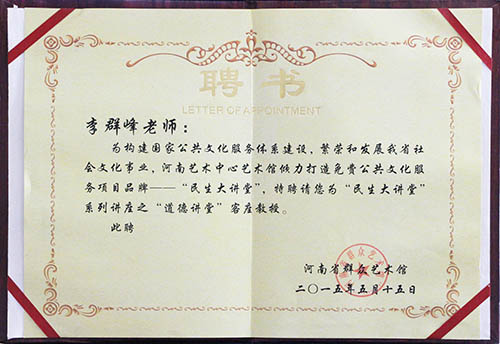 聘书
LETTER OF APPOINTMENT
李群峰老师：
为构建国家公共文化服务体系建设，繁荣和发展我省社
会文化事业，河南艺术中心艺术馆倾力打造免费公共文化服
务项目品牌——“民生大讲堂”，特聘请您为“民生大讲堂”
系列讲座之“道德讲堂”客座教授。
此聘
河南省群众艺术馆
二〇一五年五月十五日